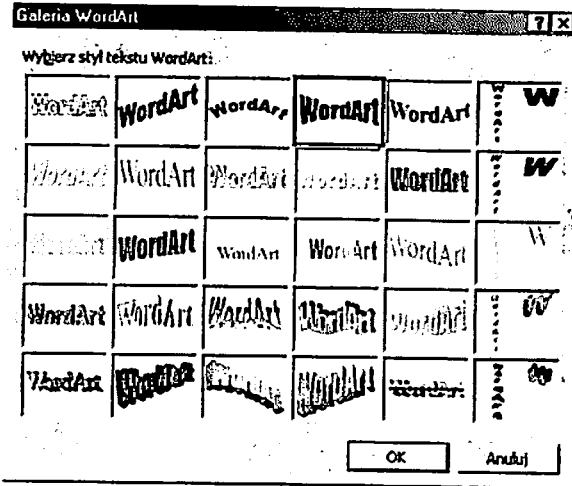 Galeria WordArt
Wybierz styl tekstu WordArt:
WordArt WordArt WordArt WordArt WordArt WordArt W
WordArt WordArt WordArt WordArt WordArt W
WordArt WordArt WordArt WordArt WordArt W
WordArt WordArt WordArt WordArt WordArt WordArt W
WordArt WordArt WordArt WordArt WordArt WordArt W
OK Anuluj